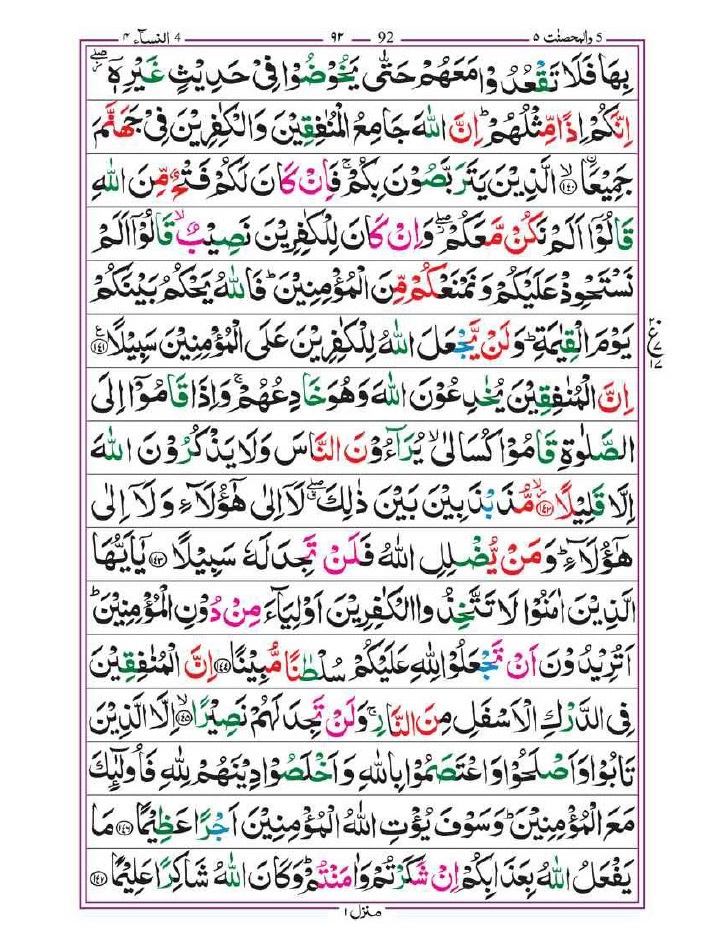 النسآء ٤ 4 ٩٢ 92 والمحصنت ٥ 5
بِهَا فَلَا تَقْعُدُوْا مَعَهُمْ حَتّٰى يَخُوْضُوْا فِىْ حَدِيْثٍ غَيْرِهٖۤ ۖ
اِنَّكُمْ اِذًا مِّثْلُهُمْ ؕ اِنَّ اللّٰهَ جَامِعُ الْمُنٰفِقِيْنَ وَالْكٰفِرِيْنَ فِىْ جَهَنَّمَ
جَمِيْعًا ۙ‏﴿۱۴۰﴾ الَّذِيْنَ يَتَرَبَّصُوْنَ بِكُمْ ۚ فَاِنْ كَانَ لَكُمْ فَتْحٌ مِّنَ اللّٰهِ
قَالُوْۤا اَلَمْ نَكُنْ مَّعَكُمْ ۖ وَاِنْ كَانَ لِلْكٰفِرِيْنَ نَصِيْبٌ ۙ قَالُوْۤا اَلَمْ
نَسْتَحْوِذْ عَلَيْكُمْ وَنَمْنَعْكُمْ مِّنَ الْمُؤْمِنِيْنَ ؕ فَاللّٰهُ يَحْكُمُ بَيْنَكُمْ
يَوْمَ الْقِيٰمَةِ ؕ وَلَنْ يَّجْعَلَ اللّٰهُ لِلْكٰفِرِيْنَ عَلَى الْمُؤْمِنِيْنَ سَبِيْلًا ﴿۱۴۱﴾
٢٠ ع ٧ ١٧
اِنَّ الْمُنٰفِقِيْنَ يُخٰدِعُوْنَ اللّٰهَ وَهُوَ خَادِعُهُمْ ۚ وَاِذَا قَامُوْۤا اِلَى
الصَّلٰوةِ قَامُوْا كُسَالٰى ۙ يُرَآءُوْنَ النَّاسَ وَلَا يَذْكُرُوْنَ اللّٰهَ
اِلَّا قَلِيْلًا ۙ‏﴿۱۴۲﴾ مُّذَبْذَبِيْنَ بَيْنَ ذٰلِكَ ۖ لَاۤ اِلٰى هٰۤؤُلَآءِ وَلَاۤ اِلٰى
هٰۤؤُلَآءِ ؕ وَمَنْ يُّضْلِلِ اللّٰهُ فَلَنْ تَجِدَ لَهٗ سَبِيْلًا ﴿۱۴۳﴾ يٰۤاَيُّهَا
الَّذِيْنَ اٰمَنُوْا لَا تَتَّخِذُوا الْكٰفِرِيْنَ اَوْلِيَآءَ مِنْ دُوْنِ الْمُؤْمِنِيْنَ ؕ
اَتُرِيْدُوْنَ اَنْ تَجْعَلُوْا لِلّٰهِ عَلَيْكُمْ سُلْطٰنًا مُّبِيْنًا ﴿۱۴۴﴾ اِنَّ الْمُنٰفِقِيْنَ
فِى الدَّرْكِ الْاَسْفَلِ مِنَ النَّارِ ۚ وَلَنْ تَجِدَ لَهُمْ نَصِيْرًا ۙ‏﴿۱۴۵﴾ اِلَّا الَّذِيْنَ
تَابُوْا وَاَصْلَحُوْا وَاعْتَصَمُوْا بِاللّٰهِ وَاَخْلَصُوْا دِيْنَهُمْ لِلّٰهِ فَاُولٰٓئِكَ
مَعَ الْمُؤْمِنِيْنَ ؕ وَسَوْفَ يُؤْتِ اللّٰهُ الْمُؤْمِنِيْنَ اَجْرًا عَظِيْمًا ﴿۱۴۶﴾ مَا
يَفْعَلُ اللّٰهُ بِعَذَابِكُمْ اِنْ شَكَرْتُمْ وَاٰمَنْتُمْ ؕ وَكَانَ اللّٰهُ شَاكِرًا عَلِيْمًا ﴿۱۴۷﴾
منزل ١